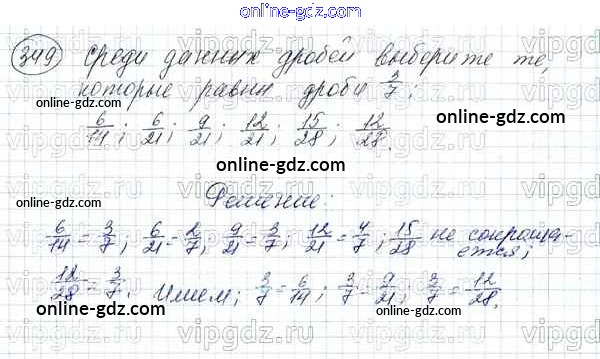 online-gdz.com
349 Среди данных дробей выберите те,
которые равны дроби 3/7:
online-gdz.com
6/14; 6/21; 9/21; 12/21; 15/28; 12/28.
online-gdz.com
Решение:
online-gdz.com
6/14 = 3/7; 6/21 = 2/7; 9/21 = 3/7; 12/21 = 4/7; 15/28 не сокраща-
ется;
12/28 = 3/7. Имеем; 3/7 = 6/14; 3/7 = 9/21; 3/7 = 12/28.
online-gdz.com online-gdz.com